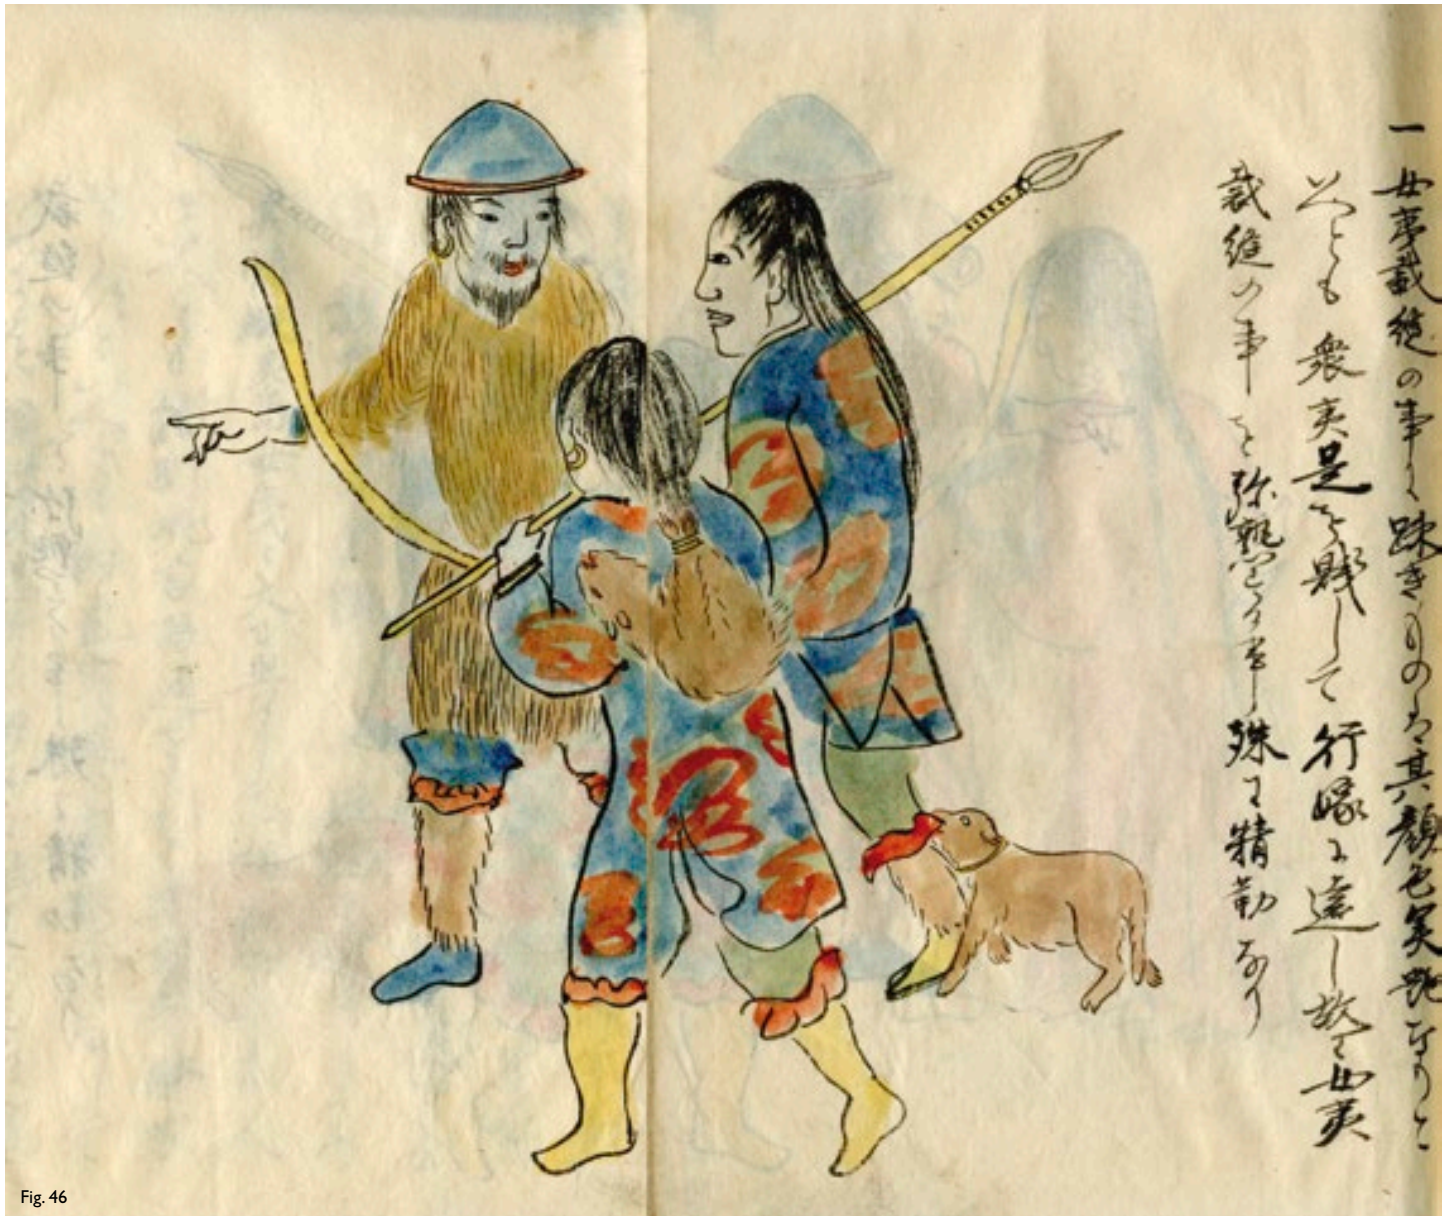 一女夷裁縫の事に疎きものは其顔色美艶なりと
いへとも衆夷是を賤して行嫁に遠し故に女夷
裁縫の事を弥懇にす事殊に精勤なり
Fig. 46